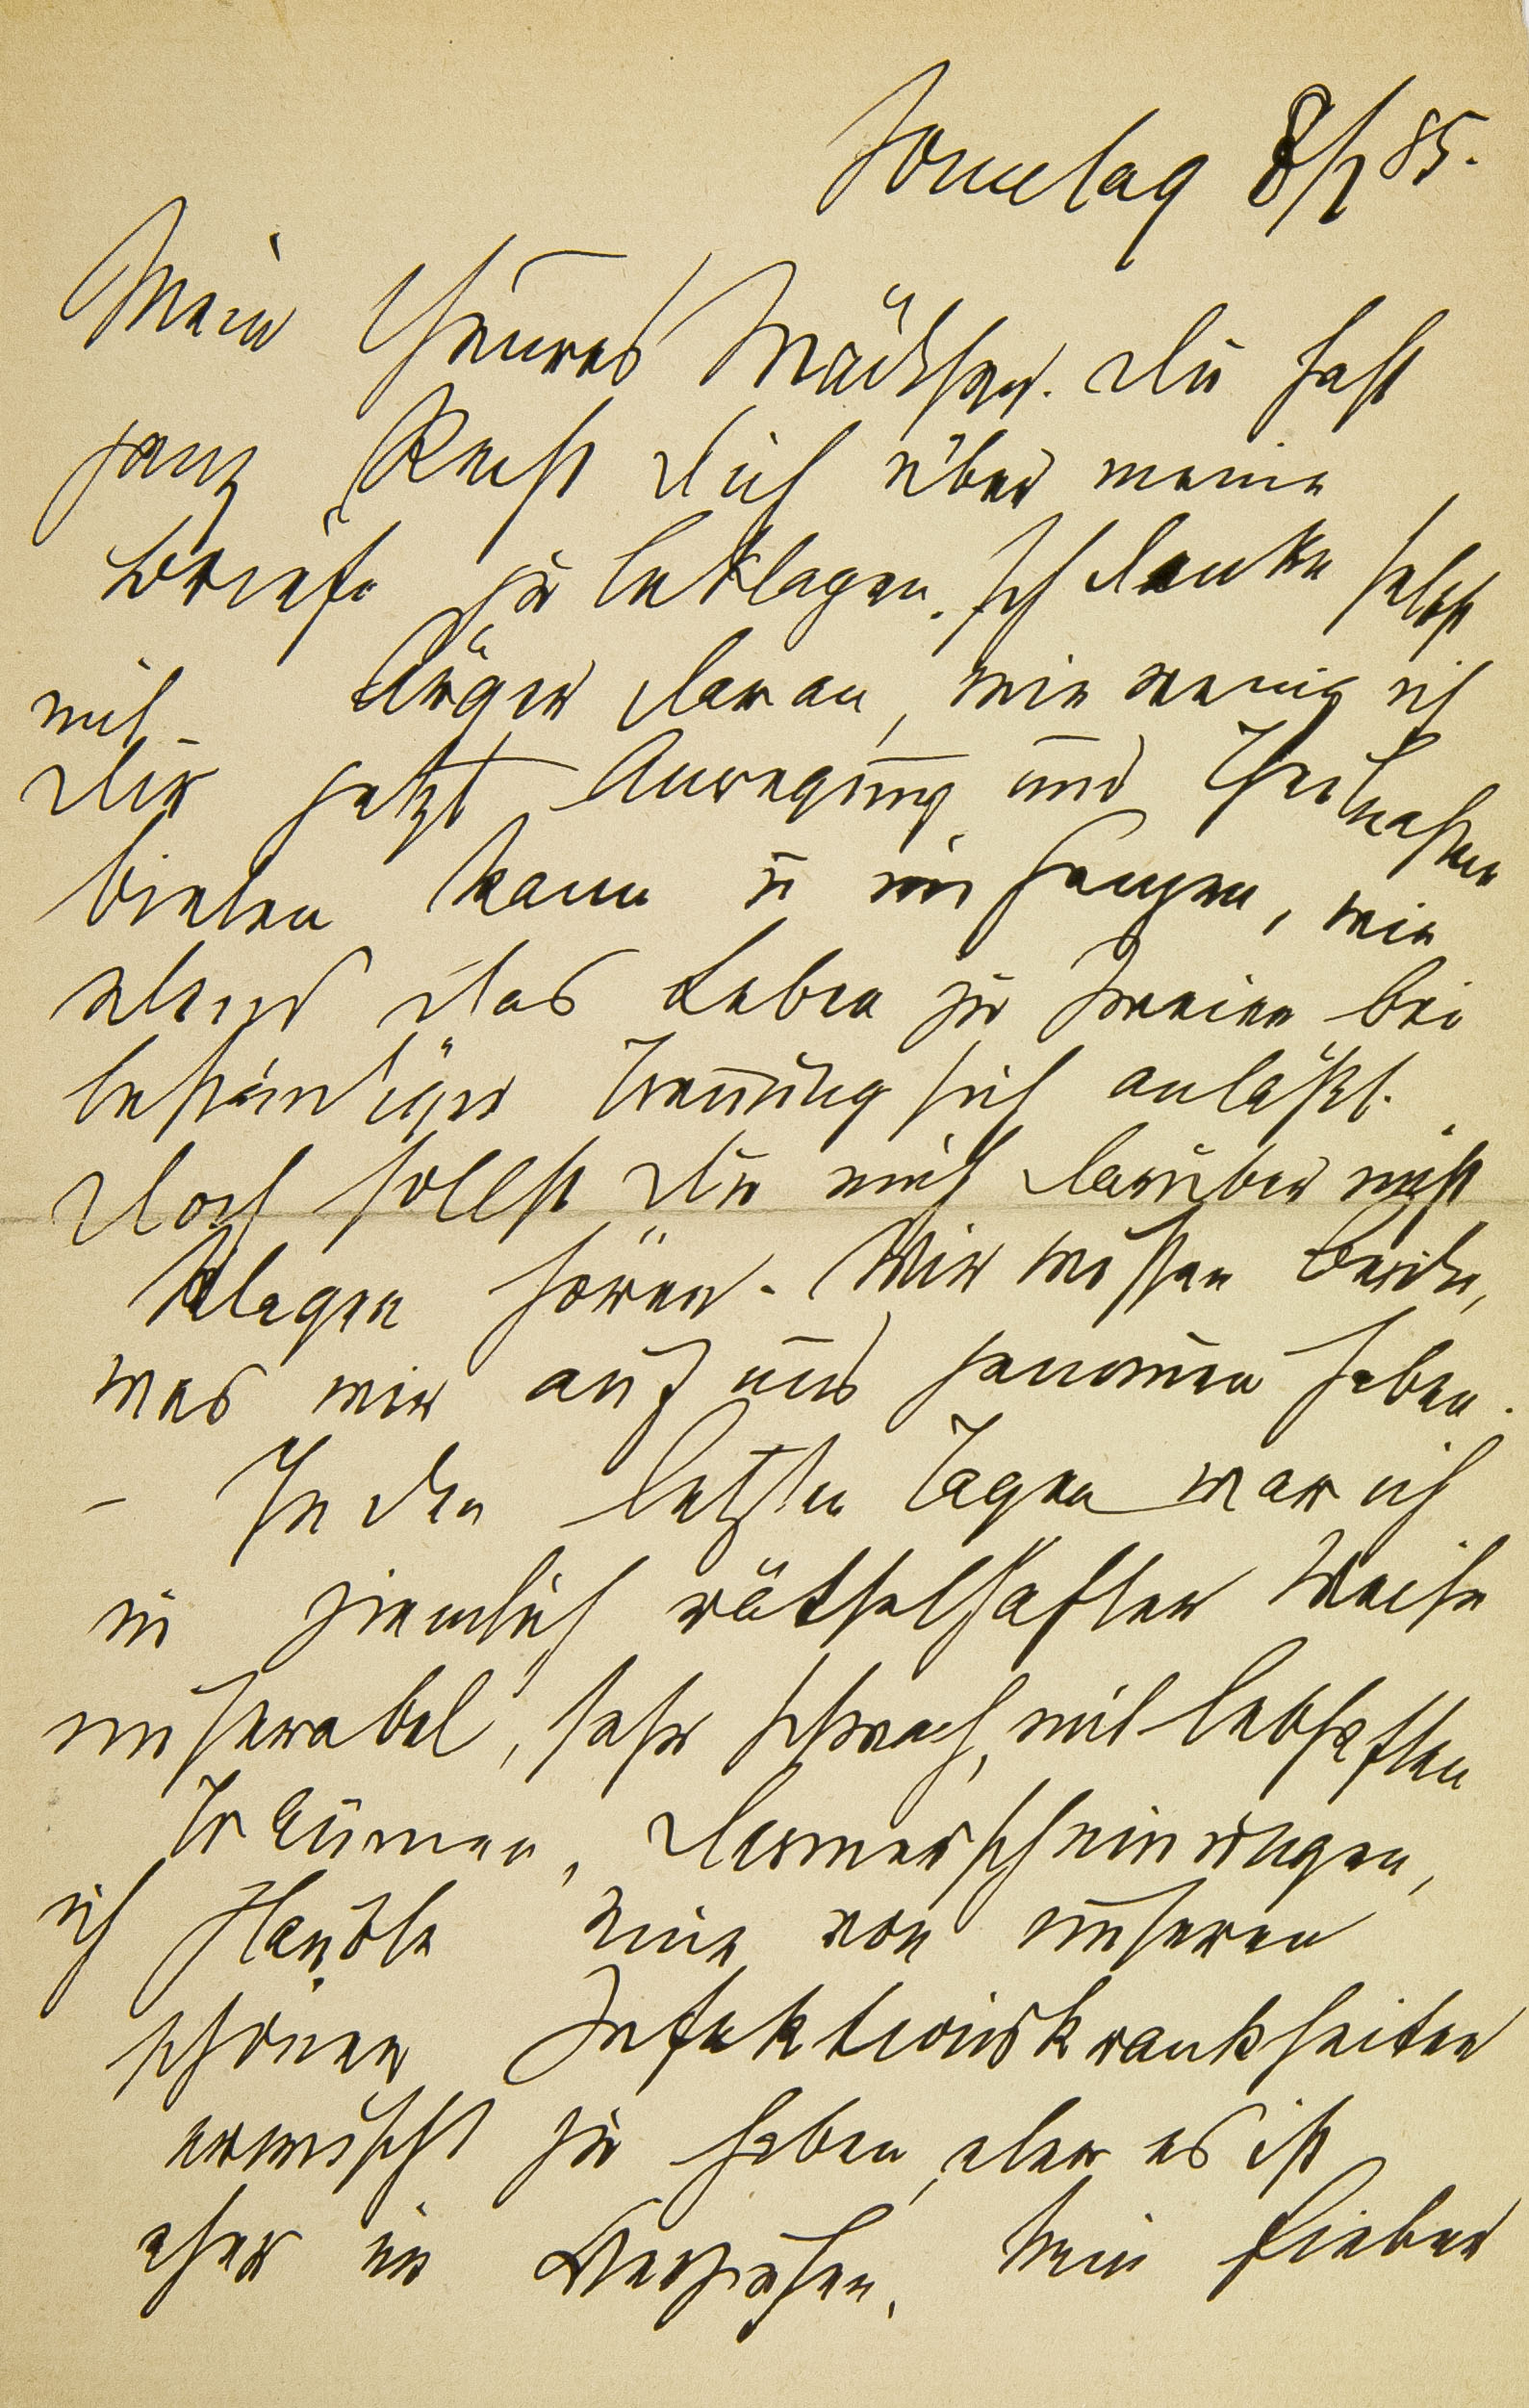 Sonntag 8/2 85.
Mein theures Mädchen. Du hast
ganz Recht Dich über meine
Briefe zu beklagen. Ich denke selbst
mit Ärger daran, wie wenig ich
Dir jetzt Anregung und Theilnahme
bieten kann u im Ganzen, wie
elend das Leben zu Zweien bei
beständiger Trennung sich anläßt.
Doch sollst Du mich darüber nicht
klagen hören. Wir wissen Beide,
was wir auf uns genommen haben.
– In den letzten Tagen war ich
in ziemlich rätselhafter Weise
miserabel, sehr schwach, mit lebhaften
Träumen, Darmerscheinungen,
ich glaubte eine von unseren
schönen Infektionskrankheiten
erwischt zu haben, aber es ist
eher im Verziehen, kein Fieber